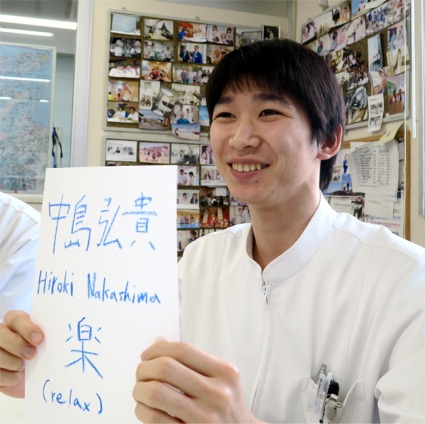 中島弘貴
Hiroki Nakashima
楽
(relax)